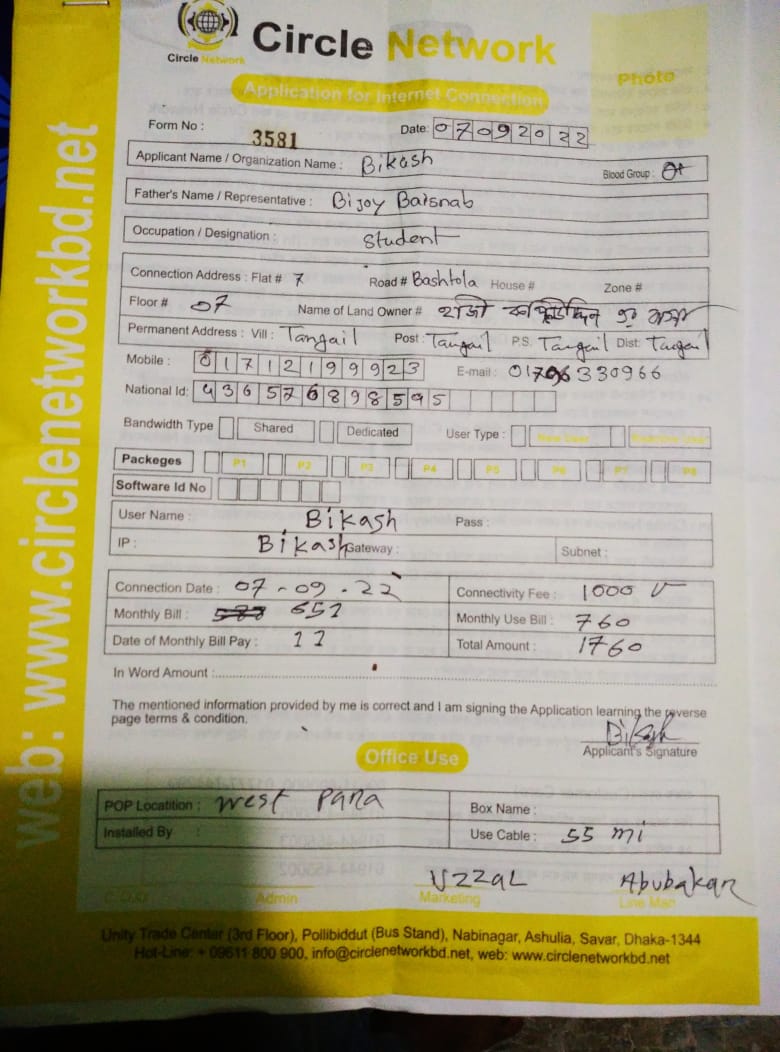 Circle Network
Circle Network
Photo
Application for Internet Connection
Form No : 3581 Date: 07092022
Applicant Name / Organization Name : Bikash Blood Group : O+
Father's Name / Representative : Bijoy Baisnab
Occupation / Designation : Student
Connection Address : Flat # 7 Road # Bashtola House # Zone #
Floor # 07 Name of Land Owner # হাজী
Permanent Address : Vill : Tangail Post : Tangail P.S. Tangail Dist: Tangail
Mobile : 01712199923 E-mail : 01796330966
National Id: 436576898595
Bandwidth Type Shared Dedicated User Type :
Packeges P1 P2 P3 P4 P5 P6 P7 P8
Software Id No
User Name : Bikash Pass :
IP : Bikash Gateway : Subnet :
Connection Date : 07-09-22 Connectivity Fee : 1000
Monthly Bill : 651 Monthly Use Bill : 760
Date of Monthly Bill Pay : 11 Total Amount : 1760
In Word Amount :
The mentioned information provided by me is correct and I am signing the Application learning the reverse
page terms & condition.
Bikash
Applicant's Signature
Office Use
POP Locatition : west para Box Name :
Installed By : Use Cable : 55 mi
UZZAL Abubakar
Admin Marketing Line Man
Unity Trade Center (3rd Floor), Pollibiddut (Bus Stand), Nabinagar, Ashulia, Savar, Dhaka-1344
Hot-Line: + 09611 800 900, info@circlenetworkbd.net, web: www.circlenetworkbd.net
web: www.circlenetworkbd.net